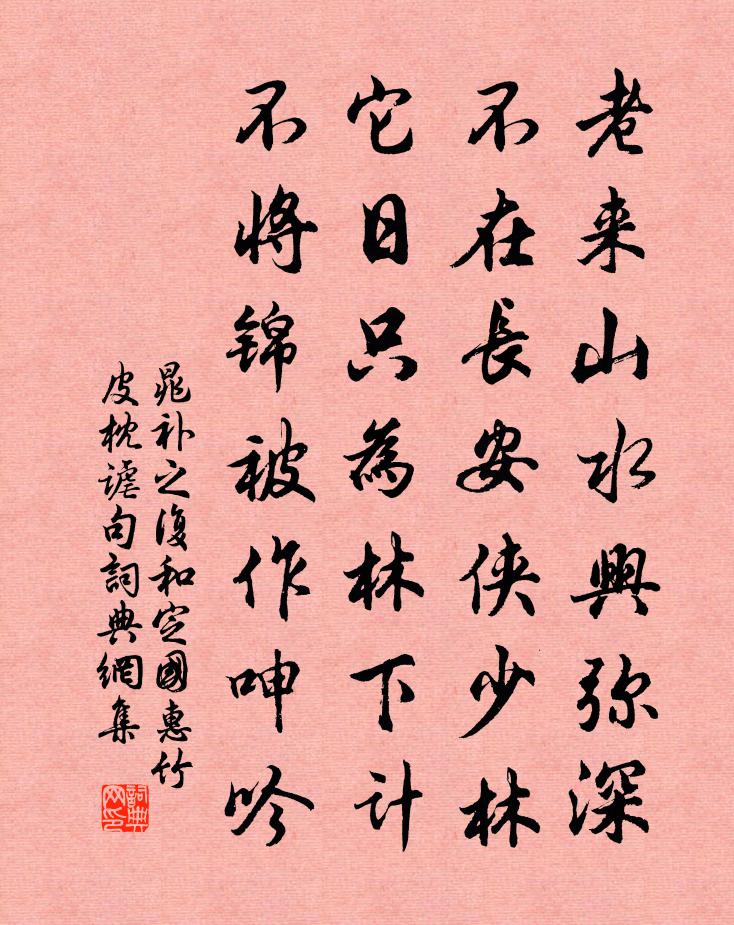 老来山水興弥深
不在長安侠少林
它日只為林下计
不將锦被作呻吟
晁补之復和定國惠竹
皮枕謔句詞典網集
詞典网印